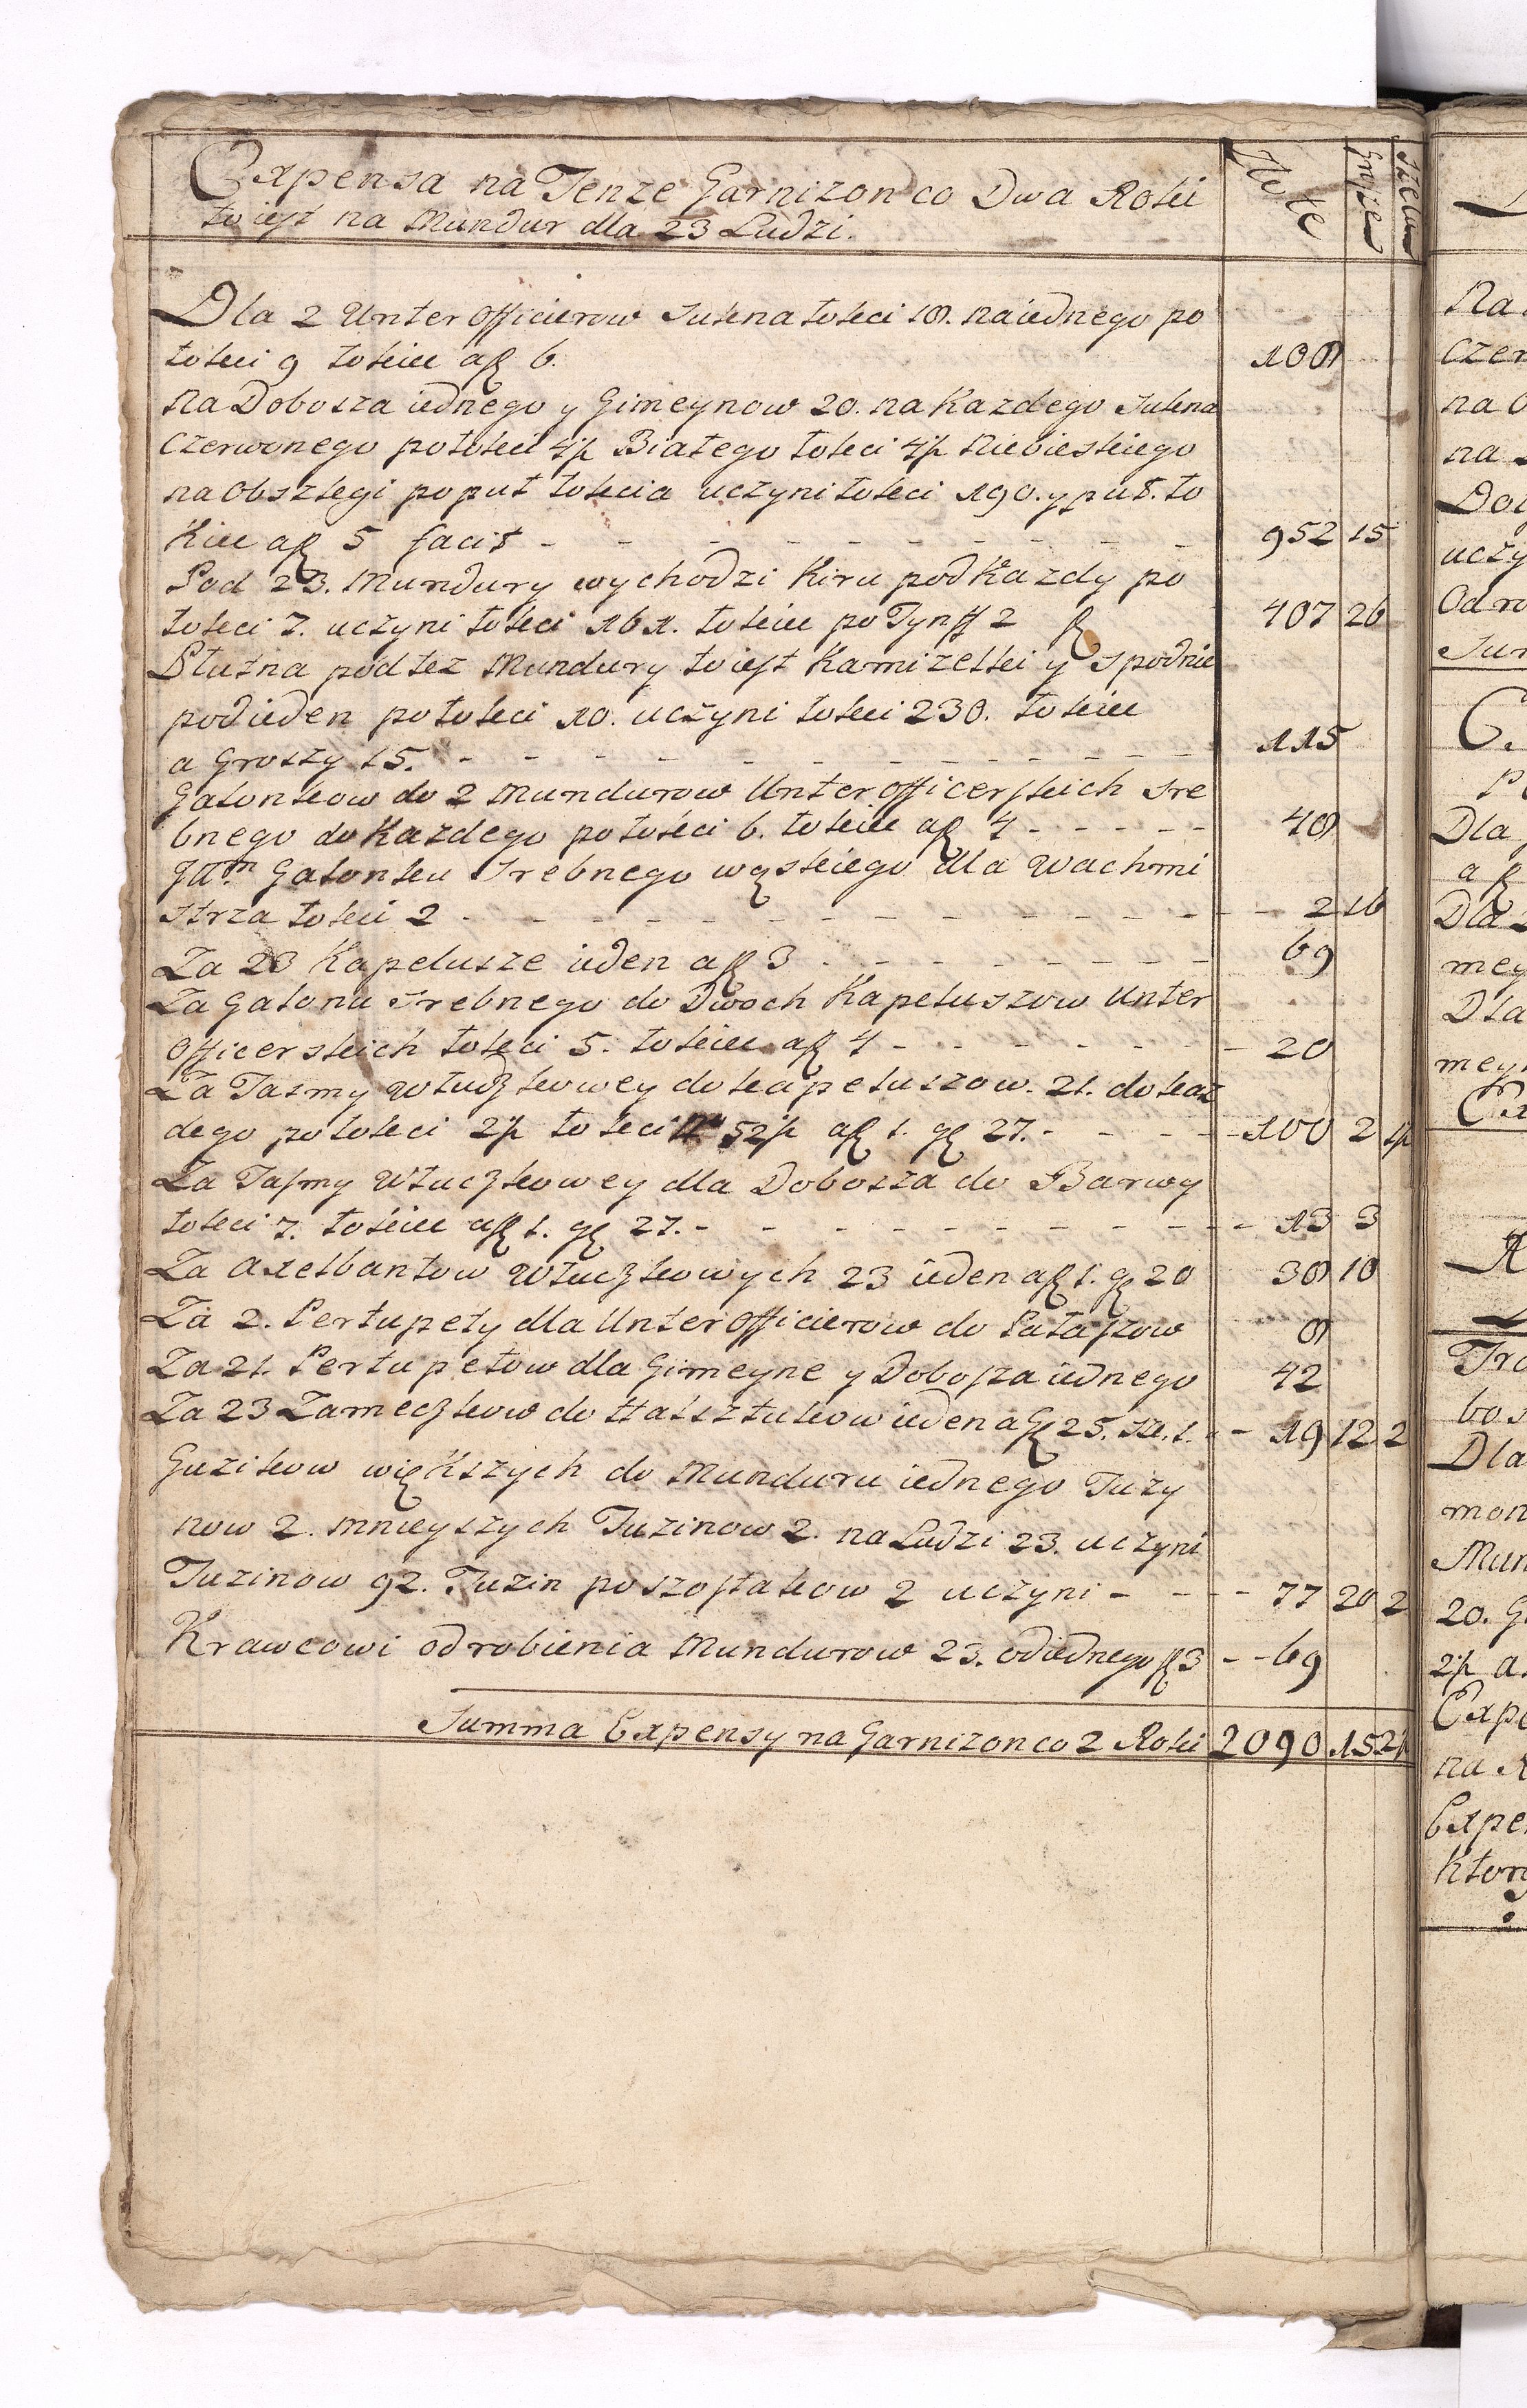 Expensa na Tenze Garnizon co Dwa Roki
to iest na Mundur dla 23 Ludzi.
Złote
Grosze
Szelu
Dla 2 Unter Officierow Sukna łokci 18. na iednego po
łokci 9 łokiec a fl 6. 108
Na Dobosza iednego y Gimeynow 20. na Kazdego Sukna
Czerwonego po łokci 4½ Białego łokci 4½ Niebieskiego
na Obszlegi po puł łokcia uczyni łokci 190. y puł. ło
Kiec a fl 5 facit - - - 952 15
Pod 23. Mundury wychodzi Kiru pod Kazdy po
łokci 7. uczyni łokci 161. łokiec po Tynff 2 fl 407 26
Płutna pod tez Mundury to iest Kamizelki y Spodnie
pod ieden po łokci 10. uczyni łokci 230. łokiec
a Groszy 15. - - - 115
Galonkow do 2 Mundurow Unter Officerskich Sre
bnego do Kazdego po łokci 6. łokiec a fl 4 - - - 48
Galonku Srebnego wąskiego dla Wachmi
strza łokci 2 - - - 2 16
Za 23 Kapelusze ieden a fl 3 - - - 69
Za Galonu Srebnego do Dwoch Kapeluszow Unter
Officerskich łokci 5. łokiec a fl 4 - - - 20
Za Tasmy Włuczkowey do kapeluszow. 21. do kaz
dego po łokci 2½ łokci 52½ a fl 1. gl 27. - - - 100 2 ½
Za Tasmy Włuczkowey dla Dobosza do Barwy
łokci 7. łokiec a fl 1. gl 27. - - - 13 3
Za Axelbantow Włuczkowych 23 ieden a fl 1. gl 20 38 10
Za 2. Pertupety dla Unter Officierow do Pałaszow 8
Za 21. Pertupetow dla Gimeyne y Dobosza iednego 42
Za 23 Zameczkow do Halsztukow ieden a gl 25. sze. 1. - 19 12 2
Guzikow większych do Munduru iednego Tuzy
now 2. Mnieyszych Tuzinow 2. na Ludzi 23. uczyni
Tuzinow 92. Tuzin po szostakow 2 uczyni - - - 77 20 2
Krawcowi od robienia Mundurow 23. od iednego fl 3 - - 69
Summa Expensy na Garnizon co 2 Roki 2090 15 2½
Na
Czer
na O
na
Doi
uczy
Od ro
Sum
Dla
a fl
Dla 2
mey
Dla
mey
Ex
Tre
bos
Dla
mon
Mun
20. G
2½ a.
Expe
na R
Expe
Ktory